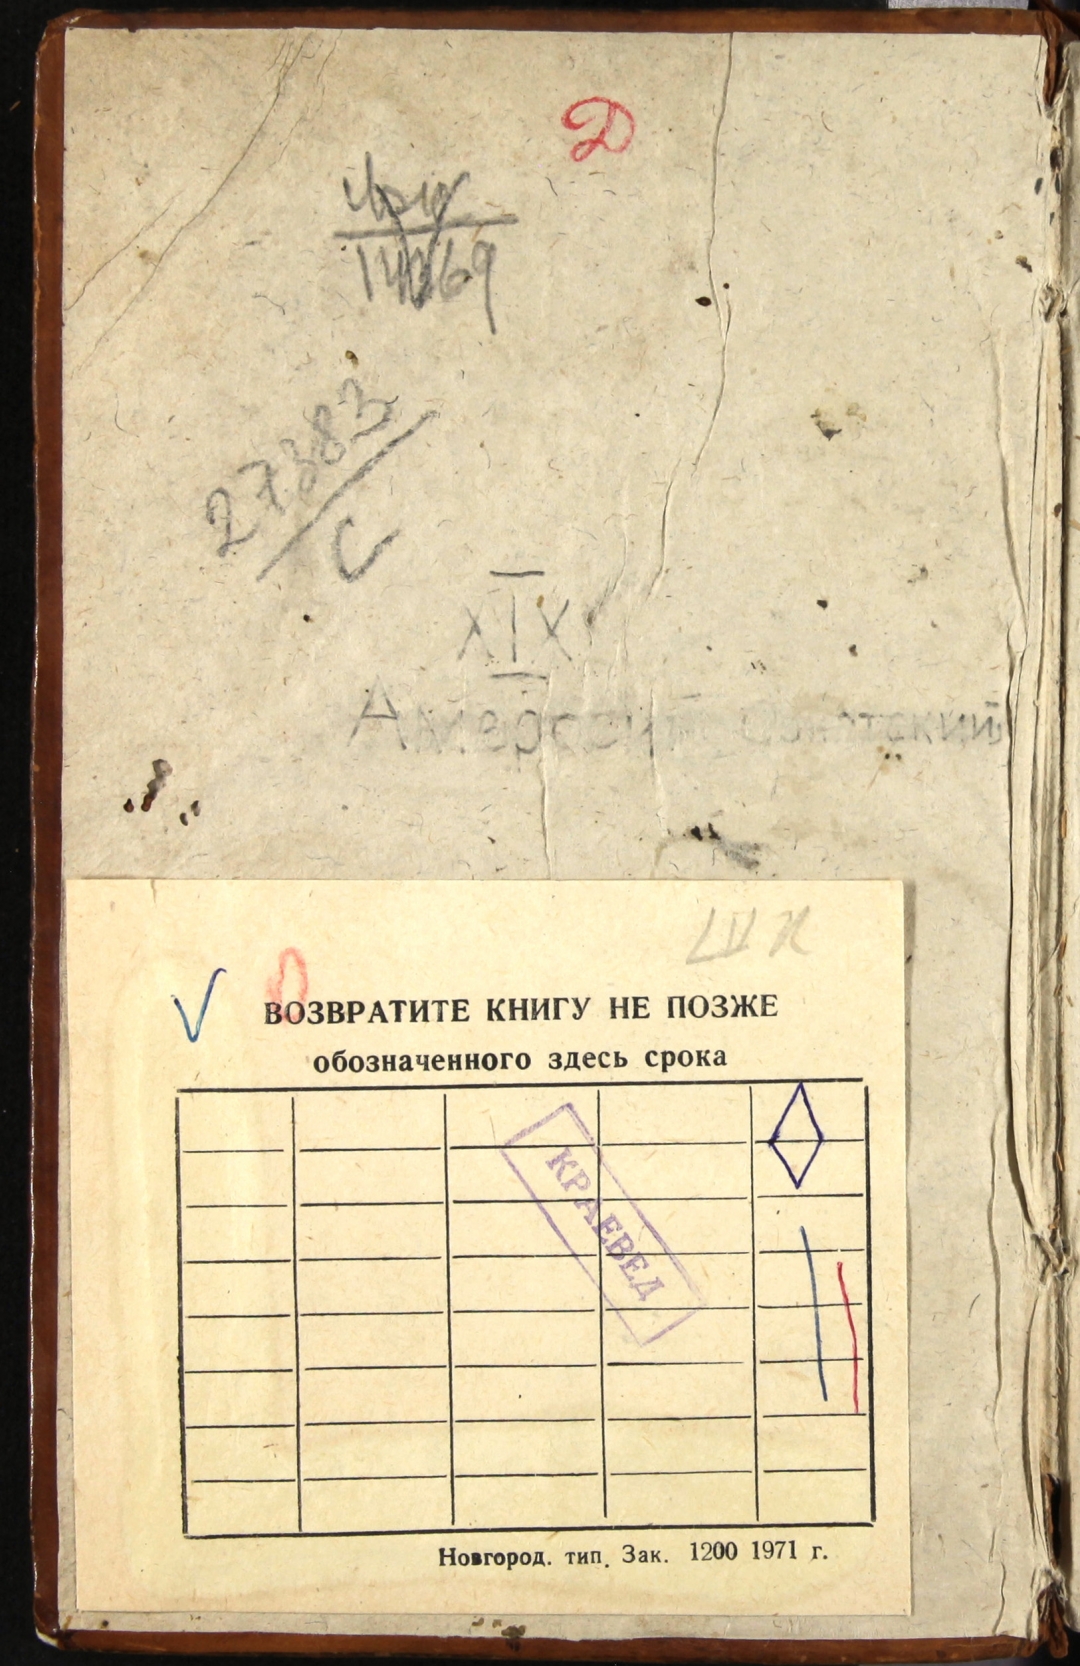 Д
27383
С
XIX
Амвросий
ВОЗВРАТИТЕ КНИГУ НЕ ПОЗЖЕ
обозначенного здесь срока
КРАЕВЕД
Новгород. тип. Зак. 1200 1971 г.